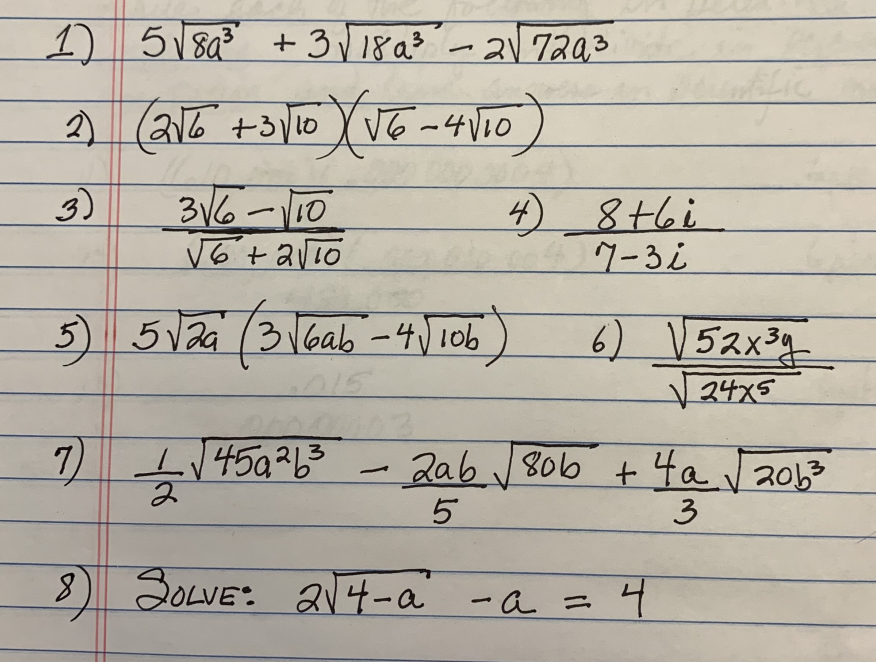 1) 5√(8a³) + 3√(18a³) - 2√(72a³)
2) (2√6 + 3√10)(√6 - 4√10)
3) (3√6 - √10)/(√6 + 2√10) 4) (8+6i)/(7-3i)
5) 5√(2a) (3√(6ab) - 4√(10b)) 6) √(52x³y)/√(24x⁵)
7) 1/2 √(45a²b³) - 2ab/5 √(80b) + 4a/3 √(20b³)
8) SOLVE: 2√(4-a) - a = 4